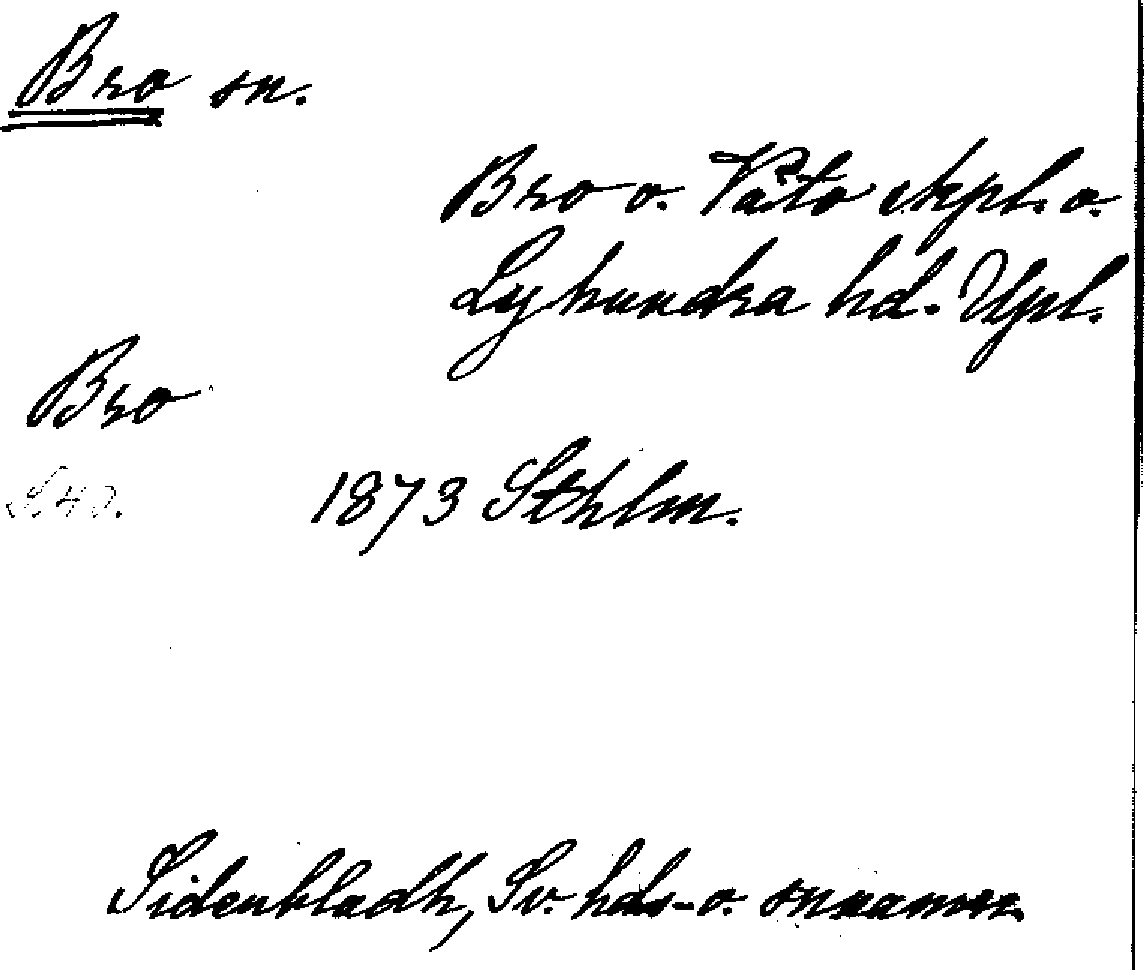 Bro sn.
Bro o. Vätö skpl. o.
Lyhundra hd. Upl.
Bro
S. 40.
1873 Sthlm.
Sidenbladh, Sv. hds- o. snnamn.